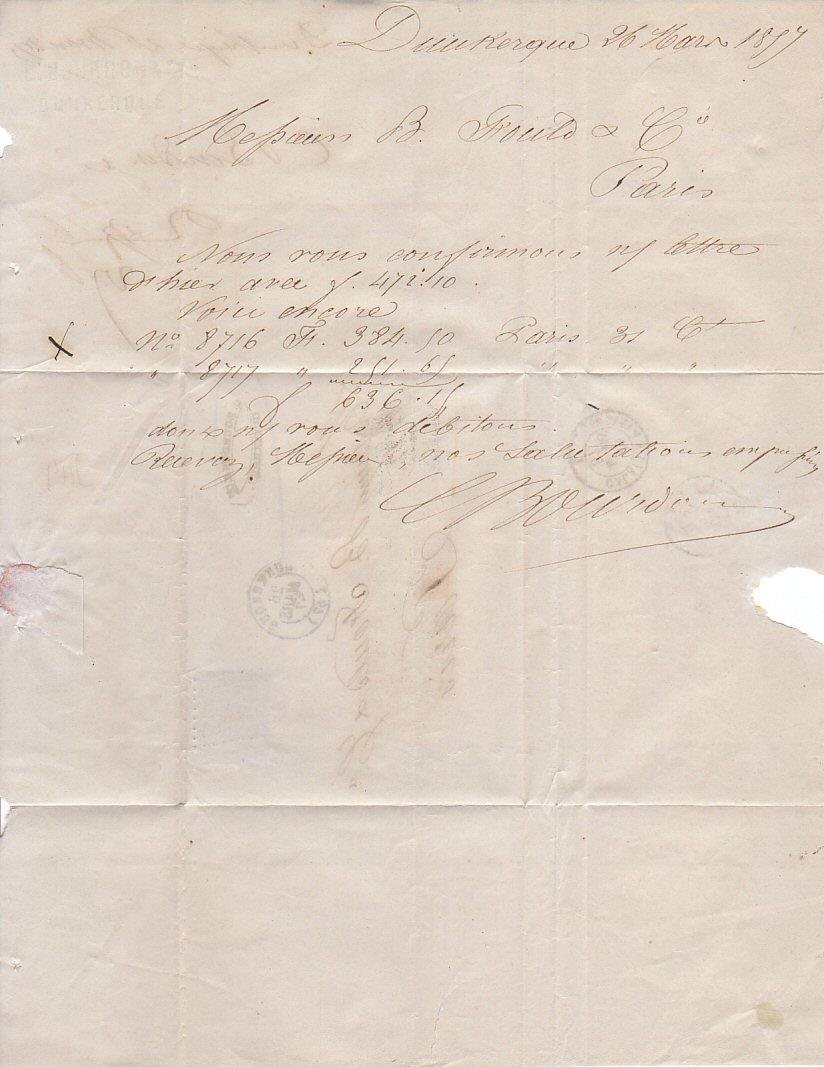 Dunkerque 26 Mars 1857
Messieurs B. Fould & Cº
Paris
Nous vous confirmons n/ lettre
d'hier avec f. 472.10.
Voici encore
Nº 8716 Fr. 384.50 Paris 31 Ct
" 8717 " 251.65 " " "
f 636.15
dont n/ vous débitons.
Recevez, Messieurs, nos Salutations empressées
C Bourdon